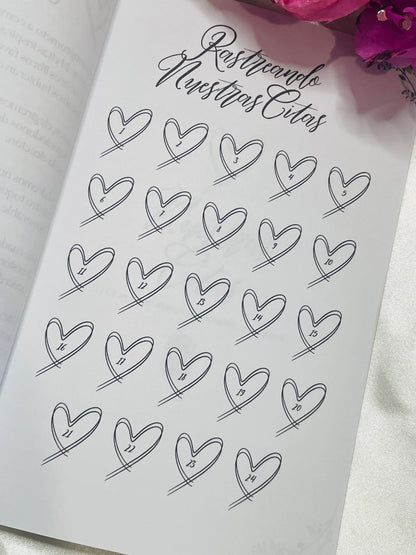 Rastreando
Nuestras Citas
1 2 3 4 5
6 7 8 9 10
11 12 13 14 15
16 17 18 19 20
21 22 23 24